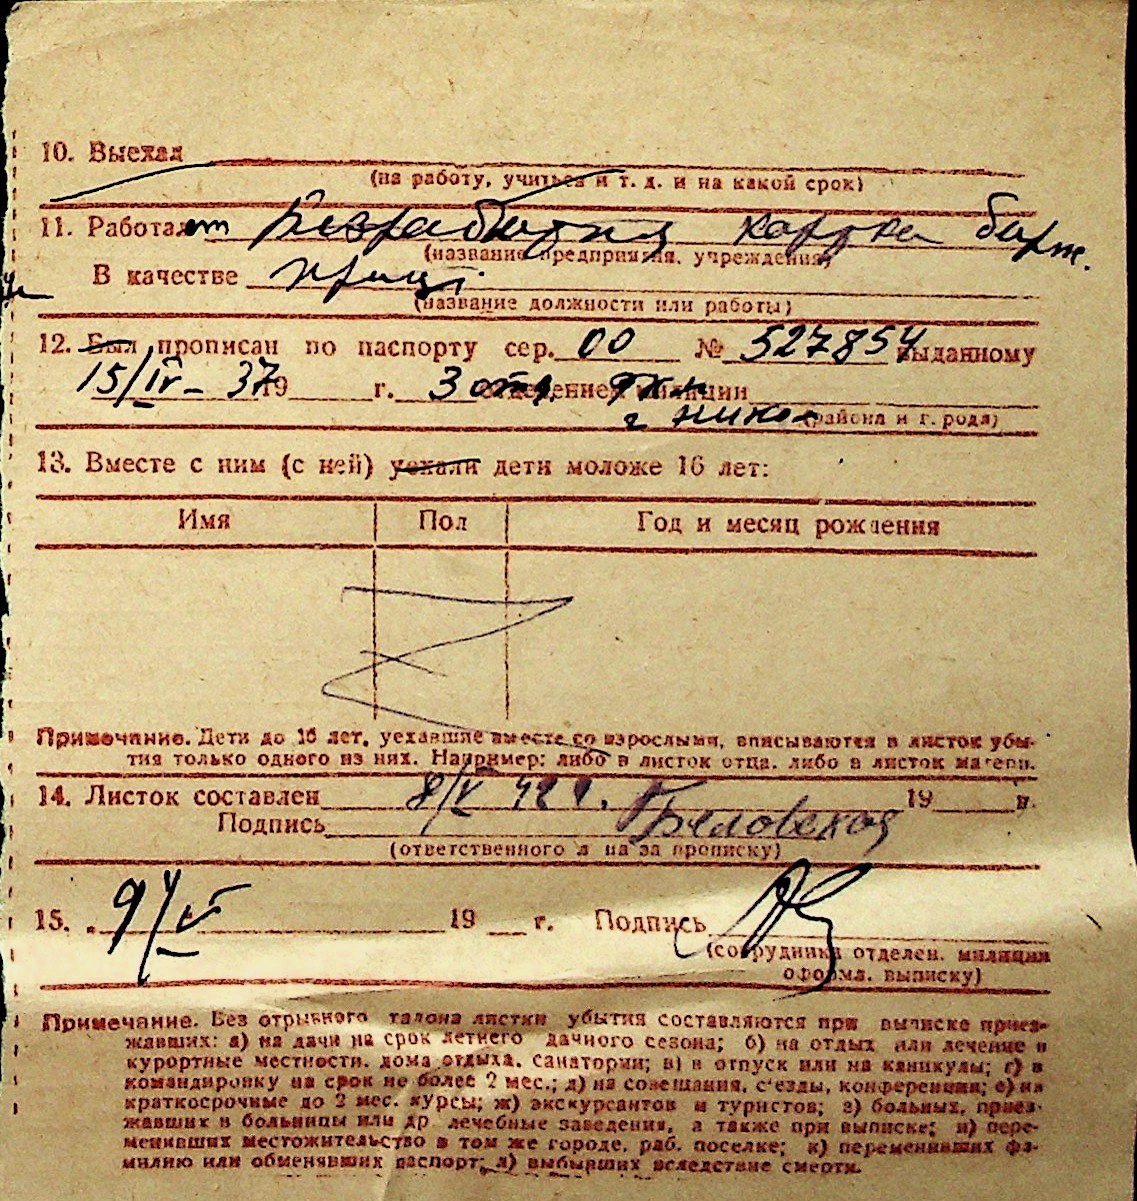 10. Выехал
(на работу, учиться и т. д. и на какой срок)
11. Работает Безработная карта бирж.
(название предприятия, учреждения)
В качестве
(название должности или работы)
12. Был прописан по паспорту сер. 00 № 527854 выданному
15/IV- 37 19 г. 3 отделением милиции
(района и города)
13. Вместе с ним (с ней) уехали дети моложе 16 лет:
Имя Пол Год и месяц рождения
Примечание. Дети до 16 лет, уехавшие вместе со взрослыми, вписываются в листок убы-
тия только одного из них. Например: либо в листок отца, либо в листок матери.
14. Листок составлен 8/V 42 г. 19 г.
Подпись Беловская
(ответственного лица за прописку)
15. 9/VI 19 г. Подпись
(сотрудника отделен. милиции
оформл. выписку)
Примечание. Без отрывного талона листки убытия составляются при выписке приез-
жавших: а) на дачи на срок летнего дачного сезона; б) на отдых или лечение в
курортные местности, дома отдыха, санатории; в) в отпуск или на каникулы; г) в
командировку на срок не более 2 мес.; д) на совещания, с'езды, конференции; е) на
краткосрочные до 2 мес. курсы; ж) экскурсантов и туристов; з) больных, приез-
жавших в больницы или др лечебные заведения, а также при выписке; и) пере-
менивших местожительство в том же городе, раб. поселке; к) переменивших фа-
милию или обменявших паспорт; л) выбывших вследствие смерти.